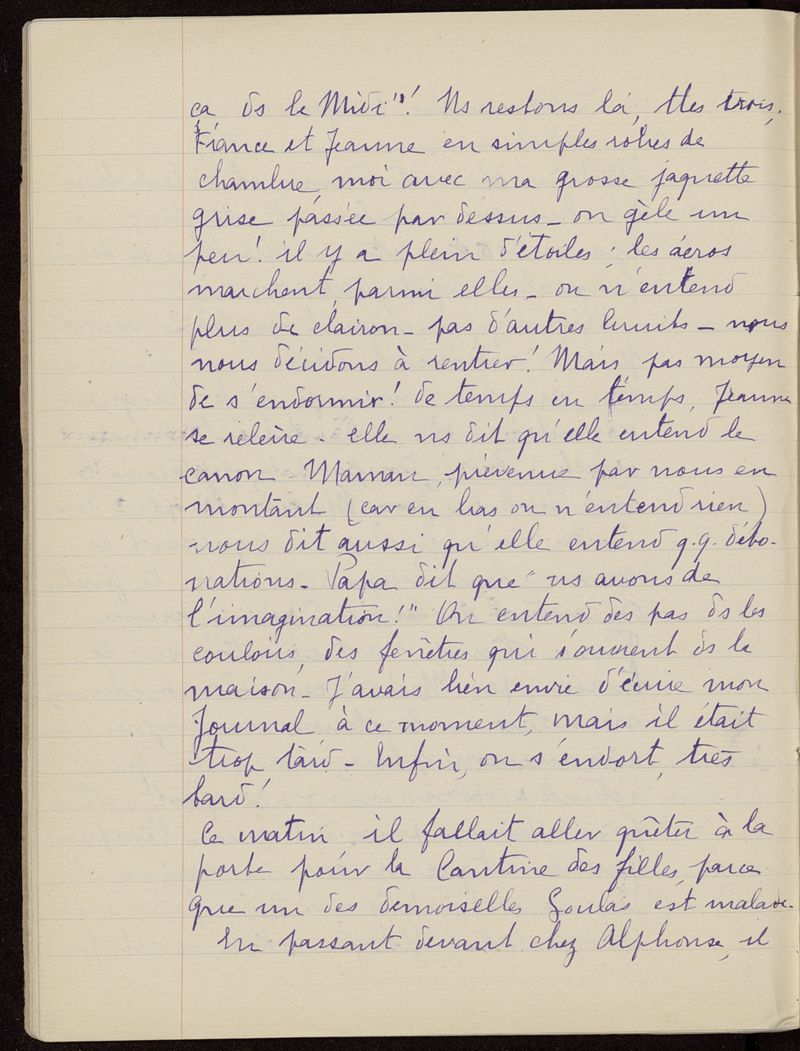 ça ds le Midi"! Ns restons là, ttes trois,
France et Jeanne en simples robes de
chambre, moi avec ma grosse jaquette
grise passée par dessus - on gèle un
peu! il y a plein d'étoiles ; les aéros
marchent, parmi elles - on n'entend
plus de clairon - pas d'autres bruits - nous
nous décidons à rentrer! Mais pas moyen
de s'endormir! de temps en temps, Jeanne
se relève - elle ns dit qu'elle entend le
canon - Maman, prévenue par nous en
montant (car en bas on n'entend rien)
nous dit aussi qu'elle entend q.q. déto-
nations - Papa dit que "ns avons de
l'imagination!" On entend des pas ds les
couloirs, des fenêtres qui s'ouvrent ds la
maison - J'avais bien envie d'écrire mon
Journal à ce moment, mais il était
trop tard - Enfin, on s'endort, très
tard!
Ce matin il fallait aller quêter à la
porte pour la Cantine des filles, parce
que un des demoiselles Goulas est malade.
En passant devant chez Alphonse, il